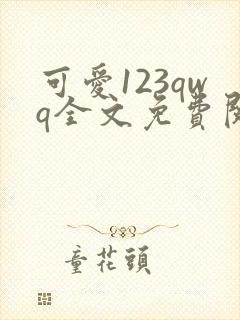 可愛123qw
q全文免費閱
童花頭